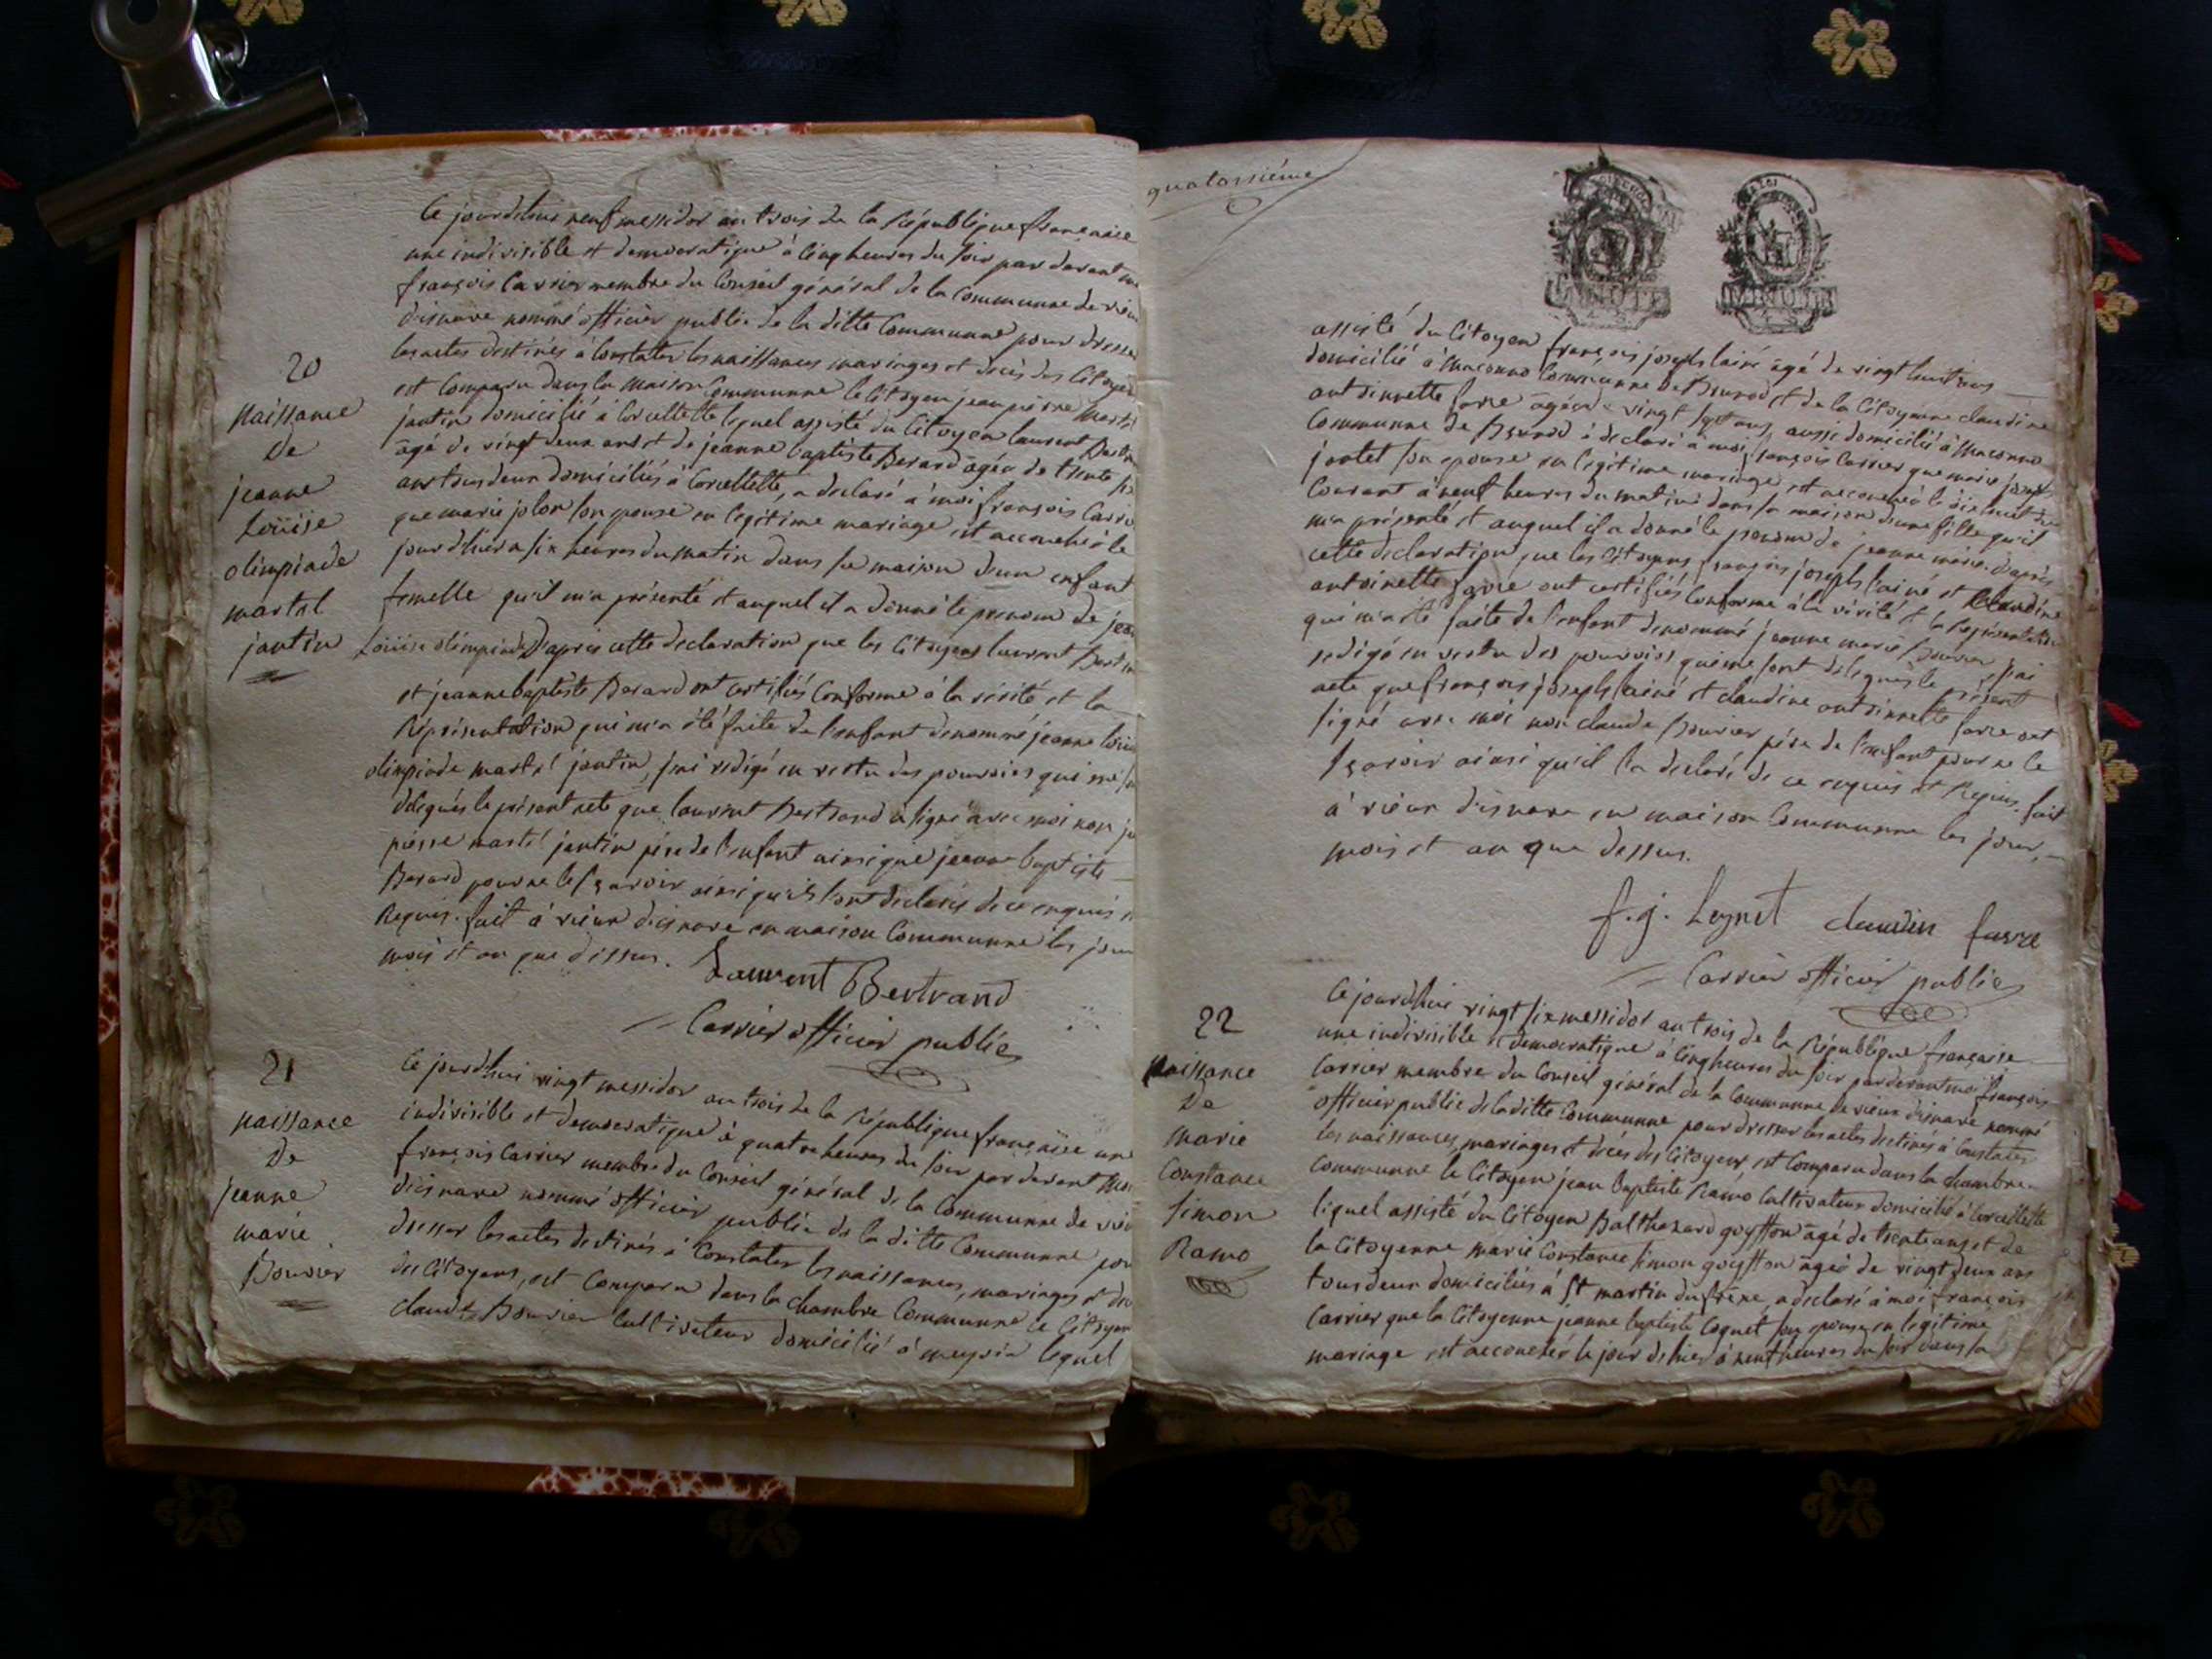 Ce jourdhui neuf messidor an trois de la République française
une indivisible et democratique à cinq heures du soir par devant
françois Carrier membre du Conseil général de la Commune de vieu
disnave nommé officier public de la ditte Commune pour dresser
les actes destinés à Constater les naissances mariages et décès des Citoyens
20
est Comparu dans la maison Commune le Citoyen jean pierre
naissance
de
jeanne
Loüise
olimpiade
martel
jantin
jantin domicilié à Corcellette lequel assisté du Citoyen laurent
âgé de vingt deux ans et de jeanne baptiste Berard âgée de trente
ans tous deux domiciliés à Corcellette, a déclaré à moi françois
que marie jolon son epouse en legitime mariage est accouchée le
jour d'hier a six heures du matin dans sa maison d'un enfant
femelle qu'il m'a présenté et auquel il a donné le prenom de
Loüise olimpiade D'après cette declaration que les Citoyens laurent
et jeanne baptiste Berard ont certifiés Conforme à la vérité et la
Représentation qui m'a été faite de l'enfant denommé jeanne
olimpiade jantin, j'ai redigé en vertu des pouvoirs qui me
délégués le présent acte que laurent Bertrand a signé avec moi non
pierre jantin père de l'enfant ainsi que jeanne baptiste
Berard pour ne le sçavoir ainsi qu'ils l'ont declarés de ce enquis
Requis. fait à vieux disnave en maison Commune les jour
mois et an que dessus.
Laurent Bertrand
Carrier officier public
21
naissance
de
jeanne
marie
Bouvier
Ce jourdhui vingt messidor an trois de la République française une
indivisible et democratique à quatre heures du soir par devant moi
françois Carrier membre du Conseil général de la Commune de
disnave nommé officier public de la ditte Commune
dresser les actes destinés à Constater les naissances, mariages et
des Citoyens, est Comparu dans la chambre Commune le Citoyen
claude Bouvier Cultivateur domicilié à lequel
quatorsiéme
assisté du Citoyen françois joseph lainé âgé de vingt huit ans
domicilié à Maconno Commune de Brenod et de la Citoyenne claudine
antoinette favre âgée de vingt sept ans, aussi domicilié à Maconno
Commune de Brenod à declaré à moi françois Carrier que marie
jantet son epouse en legitime mariage est accouchée le dix huit du
Courant à neuf heures du matin dans sa maison d'une fille qu'il
m'a présenté et auquel il a donné le prenom de jeanne marie. D'après
cette declaration que les Citoyens françois joseph lainé et Claudine
antoinette favre ont certifiés Conforme à la vérité et la Représentation
qui m'a été faite de l'enfant denommé jeanne marie Bouvier, j'ai
redigé en vertu des pouvoirs qui me sont délégués le présent
acte que françois joseph lainé et claudine antoinette favre ont
signé avec moi non claude Bouvier père de l'enfant pour ne le
sçavoir ainsi qu'il l'a declaré de ce enquis et Requis. fait
à vieux disnave en maison Commune les jour,
mois et an que dessus.
f. j. Leynet claudin favre
Carrier officier public
22
naissance
de
marie
Constance
Simon
Ramo
Ce jourdhui vingt six messidor an trois de la République française
une indivisible et democratique à cinq heures du soir par devant moi françois
Carrier membre du Conseil général de la Commune de vieux disnave nommé
officier public de la ditte Commune pour dresser les actes destinés à Constater
les naissances, mariages et décès des Citoyens, est Comparu dans la chambre
Commune le Citoyen jean baptiste Ramo Cultivateur domicilié à Corcellette
lequel assisté du Citoyen Balthazard goyffon âgé de trente ans et de
la Citoyenne marie Constance simon goyffon âgée de vingt deux ans
tous deux domiciliés à St martin du frêne, a declaré à moi françois
Carrier que la Citoyenne jeanne baptiste Coquet son epouse en legitime
mariage est accouchée le jour d'hier à neuf heures du soir dans sa